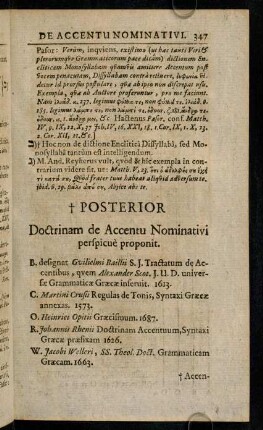 DE ACCENTU NOMINATIVI. 347
Pasor: Verùm, inquiens, existimo (ut hac tanti Viri &
plurorumque Grammaticorum pace dicam) dictionem En-
cliticam Monosyllabam quamvis amittere Accentum post
vocem penacutam, Dissyllabam contrà retinere,
decor id prorsus postulare, quæ abipso non discrepat usu.
Exempla, quæ ab Auctore proferuntur, pro me faciunt.
Nam
&c. Hactenus Pasor, conf. Matth.
IV, 9. IX, 12, X, 37 Joh. IV, 16. XXI, 18, 1. Cor, IX, 1. X, 23.
2. Cor. XII, 11, &c.
2) † Hoc non de dictione Enclitica Dissyllabâ, sed Mo-
nosyllabâ tantùm est intelligendum.
3) M. And. Reyherus vult, quòd & hîc exempla in con-
trarium videre sit. ut: Matth. V, 23.
Quòd frater tuus habeat aliquid adversum te,
ibid. 6. 29. Abjice abs te.
† POSTERIOR
Doctrinam de Accentu Nominativi
perspicuè proponit.
B. designat Guilielmi Baillii S. J. Tractatum de Ac-
centibus, quem Alexander Scot. J. U. D. univer-
se Grammaticæ Græcæ inseruit. 1613.
C. Martini Crusii Regulas de Tonis, Syntaxi Græcæ
annexas. 1573.
O. Heinrici Opitii Græcismum. 1687.
R. Johannis Rhenii Doctrinam Accentuum, Syntaxi
Græcæ præfixam 1626.
W. Jacobi Welleri, SS. Theol. Doct. Grammaticam
Græcam. 1663.
† Accen-